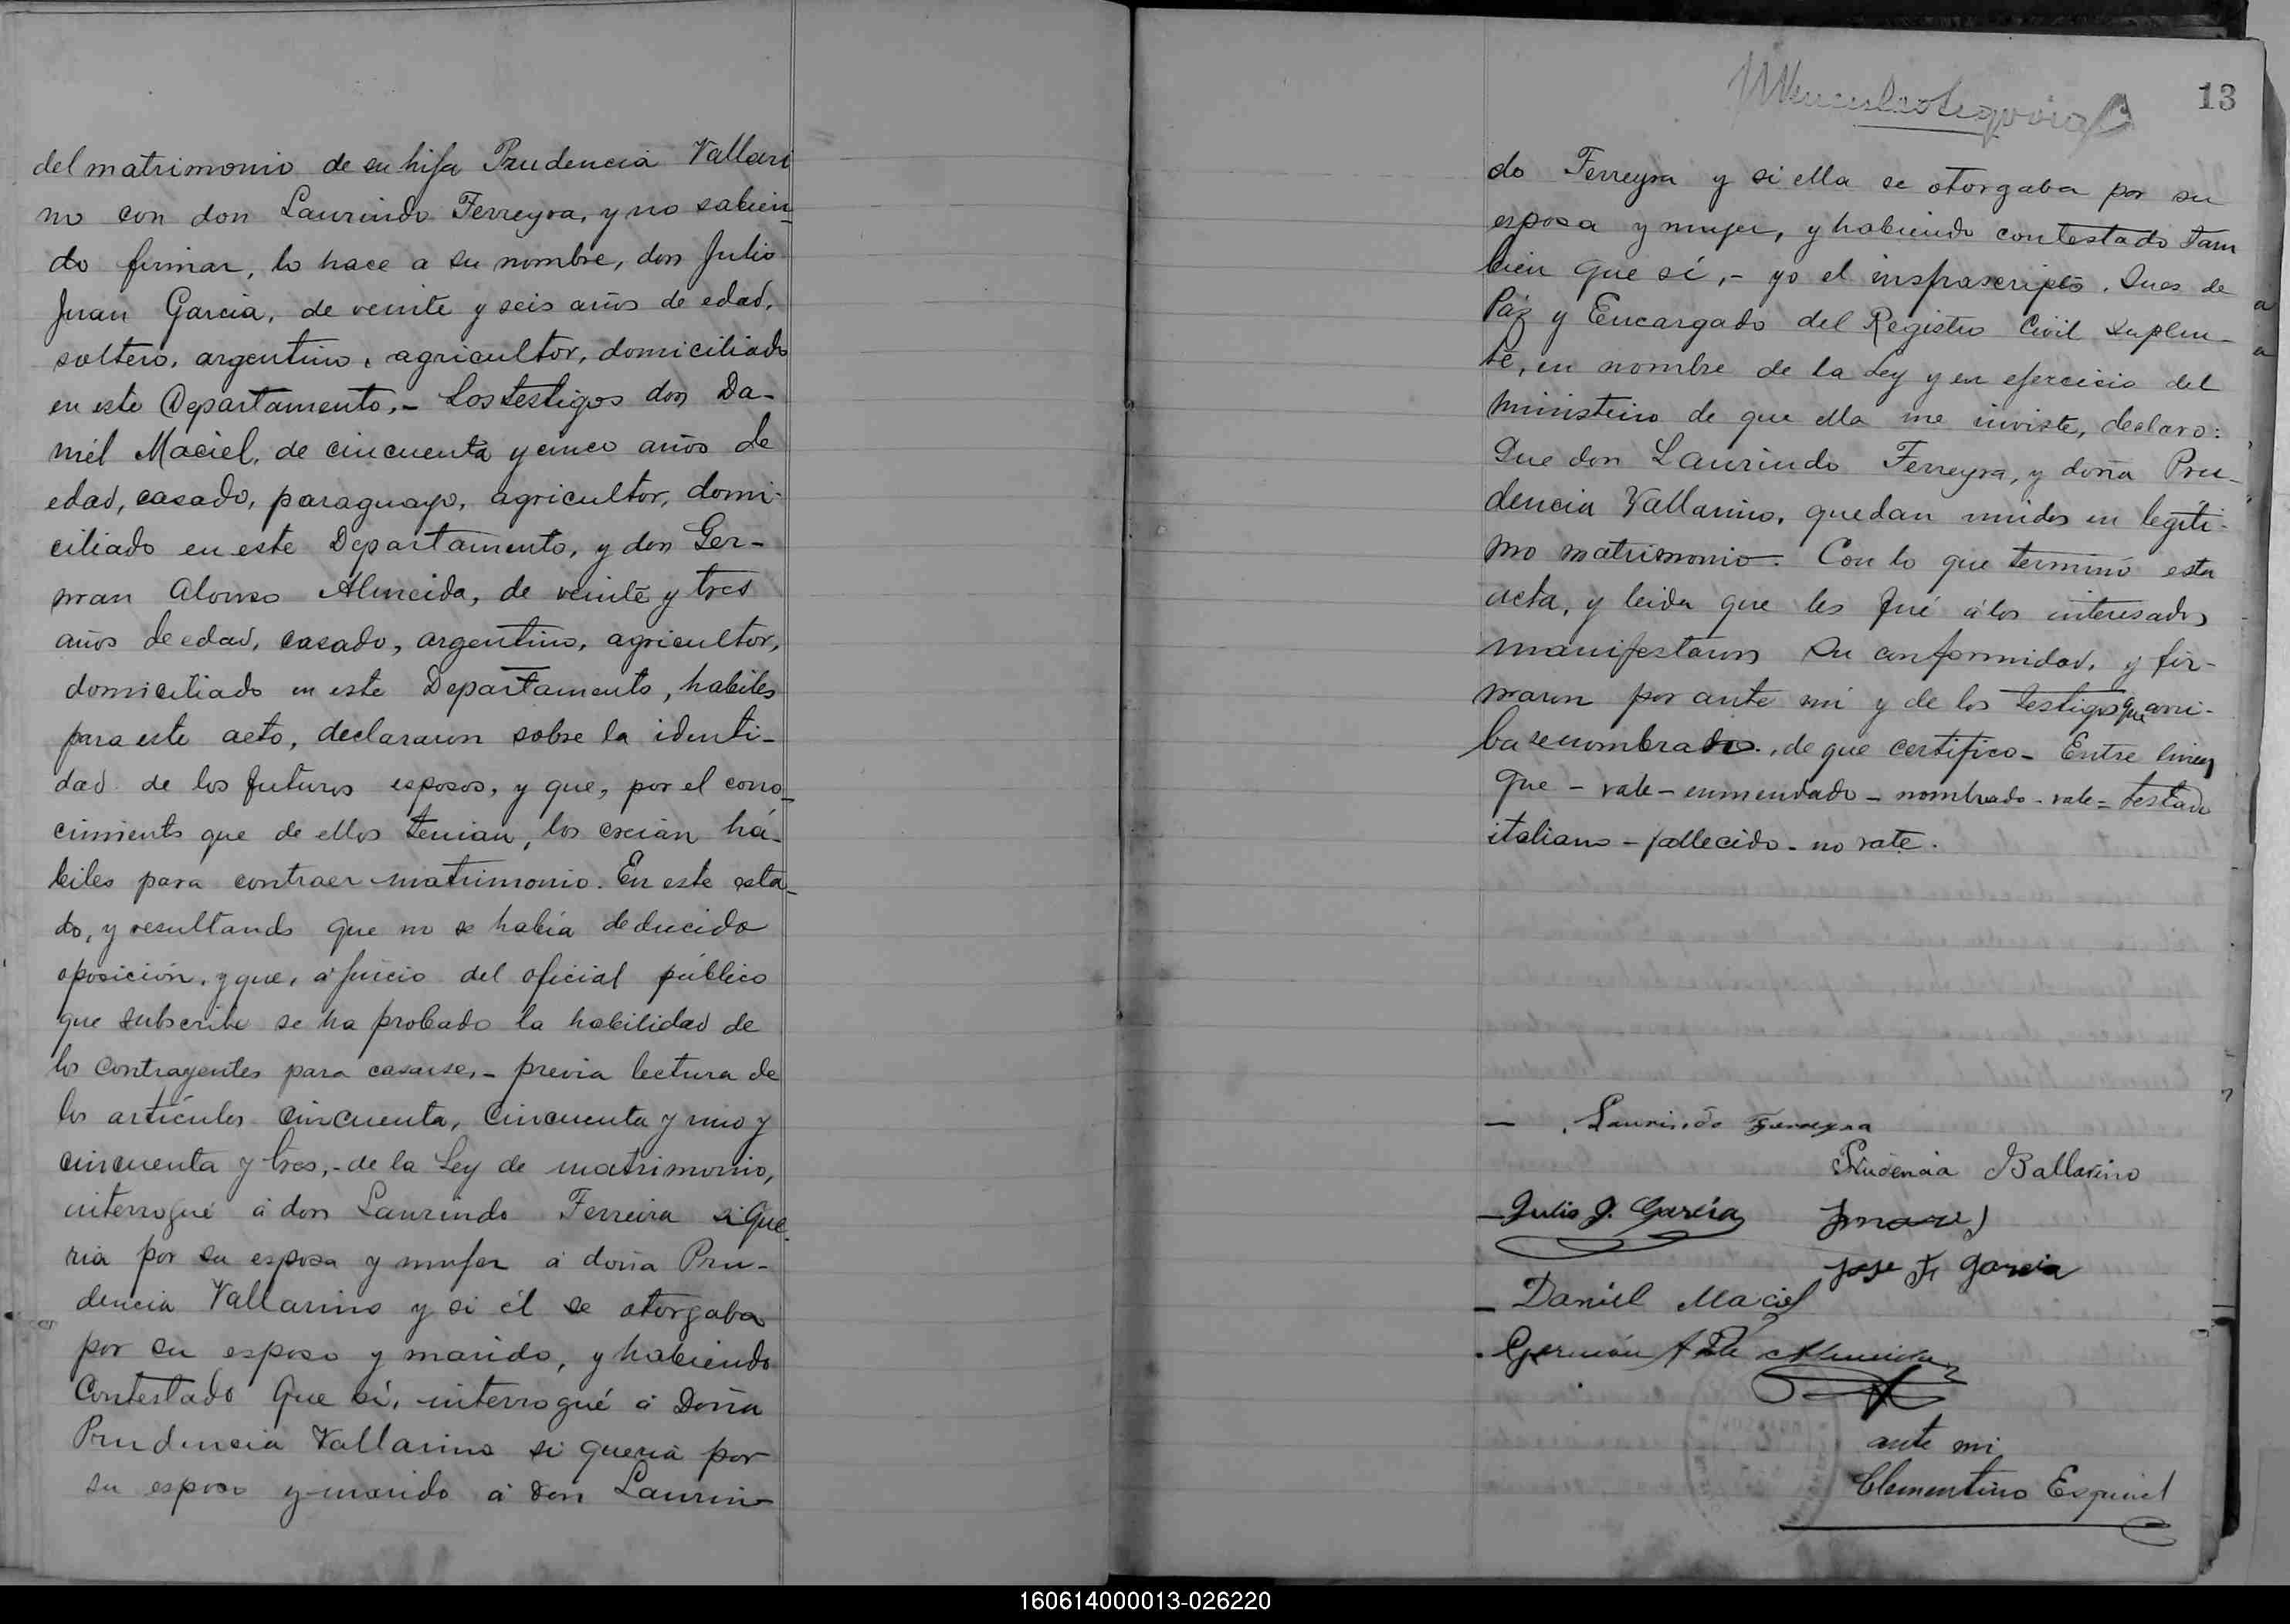 del matrimonio de su hija Prudencia Vallari
no con don Laurindo Ferreyra, y no sabien-
do firmar, lo hace a su nombre, don Julio
Juan Garcia, de veinte y seis años de edad,
soltero, argentino, agricultor, domiciliado
en este Departamento.- Los testigos don Da-
niel Maciel, de cincuenta y cinco años de
edad, casado, paraguayo, agricultor, domi-
ciliado en este Departamento, y don Ger-
man Alonso Almeida, de veinte y tres
años de edad, casado, argentino, agricultor,
domiciliado en este Departamento, habiles
para este acto, declararon sobre la identi-
dad de los futuros esposos, y que, por el cono-
cimiento que de ellos tenian, los creian há-
biles para contraer matrimonio. En este esta-
do, y resultando que no se había deducido
oposición, y que, á juicio del oficial público
que subscribe se ha probado la habilidad de
los contragentes para casarse,- previa lectura de
los artículos cincuenta, cincuenta y uno y
cincuenta y tres,- de la Ley de matrimonio,
interrogué á don Laurindo Ferreira si que-
ria por su esposa y mujer á doña Pru-
dencia Vallarino y si él se otorgaba
por su esposo y marido, y habiendo
contestado que sí, interrogué á Doña
Prudencia Vallarino si queria por
su esposo y marido á don Laurin-
13
do Ferreyra y si ella se otorgaba por su
esposa y mujer, y habiendo contestado tam
bien que sí,- yo el insfrascripto, Jues de
Páz y Encargado del Registro Civil suplen-
te, en nombre de la Ley y en ejercicio del
ministerio de que ella me inviste, declaro:
Que don Laurindo Ferreyra, y doña Pru-
dencia Vallarino, quedan unidos en legíti-
mo matrimonio. Con lo que terminó esta
acta, y leida que les fué á los interesados
manifestaron su conformidad, y fir-
maron por ante mi y de los testigos que arri-
ba se nombrados, de que certifico- Entre lineas
que - vale - enmendado - nombrado - vale = testado
italiano - fallecido - no vale.
Laurindo Ferreyra
Prudencia Ballarino
Julio J. García
Jose F. Garcia
Daniel Maciel
Germán Almeida
ante mi
Clementino Esquivel
160614000013-026220